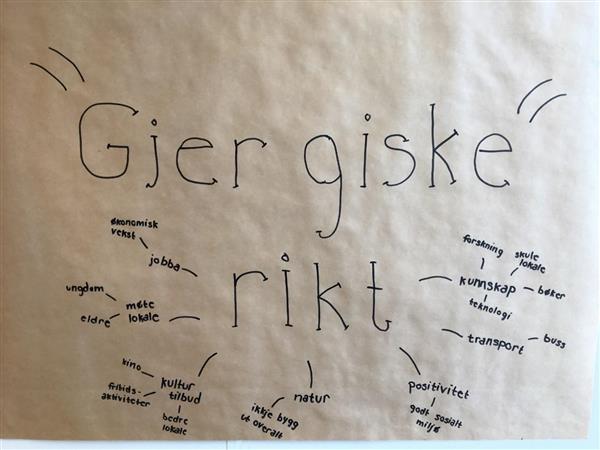 "Gjer giske"
rikt
økonomisk
vekst
jobba
ungdom
eldre
møte
lokale
kino
fritids-
aktiviteter
kultur
tilbud
bedre
lokale
natur
ikkje bygg
ut overalt
positivitet
godt sosialt
miljø
transport
buss
kunnskap
forskning
skule
lokale
bøker
teknologi